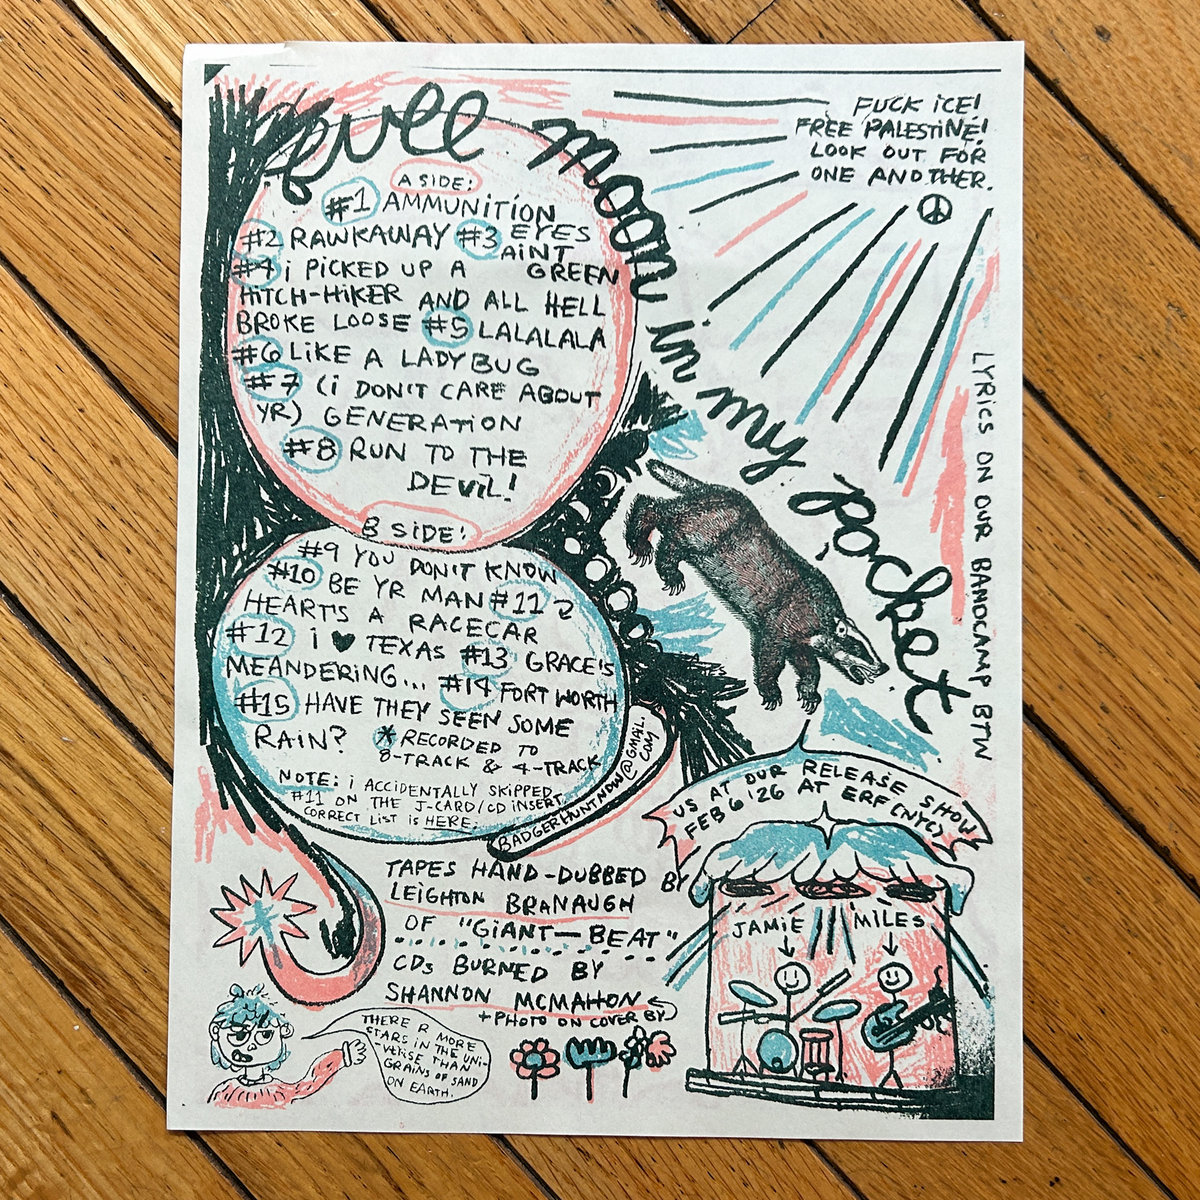 full moon in my pocket
FUCK ICE!
FREE PALESTINE!
LOOK OUT FOR
ONE ANOTHER.
A SIDE:
#1 AMMUNITION
#2 RAWKAWAY #3 EYES
AINT
#4 i PICKED UP A GREEN
HITCH-HIKER AND ALL HELL
BROKE LOOSE #5 LALALALA
#6 LIKE A LADYBUG
#7 (I DON'T CARE ABOUT
YR) GENERATION
#8 RUN TO THE
DEVIL!
B SIDE:
#9 YOU DON'T KNOW
#10 BE YR MAN #11
HEARTS A RACECAR
#12 i ♥ TEXAS #13 GRACE'S
MEANDERING... #14 FORT WORTH
#15 HAVE THEY SEEN SOME
RAIN? * RECORDED TO
8-TRACK & 4-TRACK
NOTE: i ACCIDENTALLY SKIPPED
#11 ON THE J-CARD/CD INSERT.
CORRECT LIST IS HERE.
BADGERHUNTNOW@GMAIL.
COM
LYRICS ON OUR BANDCAMP BTW
US AT OUR RELEASE SHOW
FEB 6 '26 AT ERF (NYC)
JAMIE MILES
TAPES HAND-DUBBED BY
LEIGHTON BRANAUGH
OF "GIANT-BEAT"
CDs BURNED BY
SHANNON MCMAHON
+ PHOTO ON COVER BY
THERE R MORE
STARS IN THE UNI-
VERSE THAN
GRAINS OF SAND
ON EARTH.